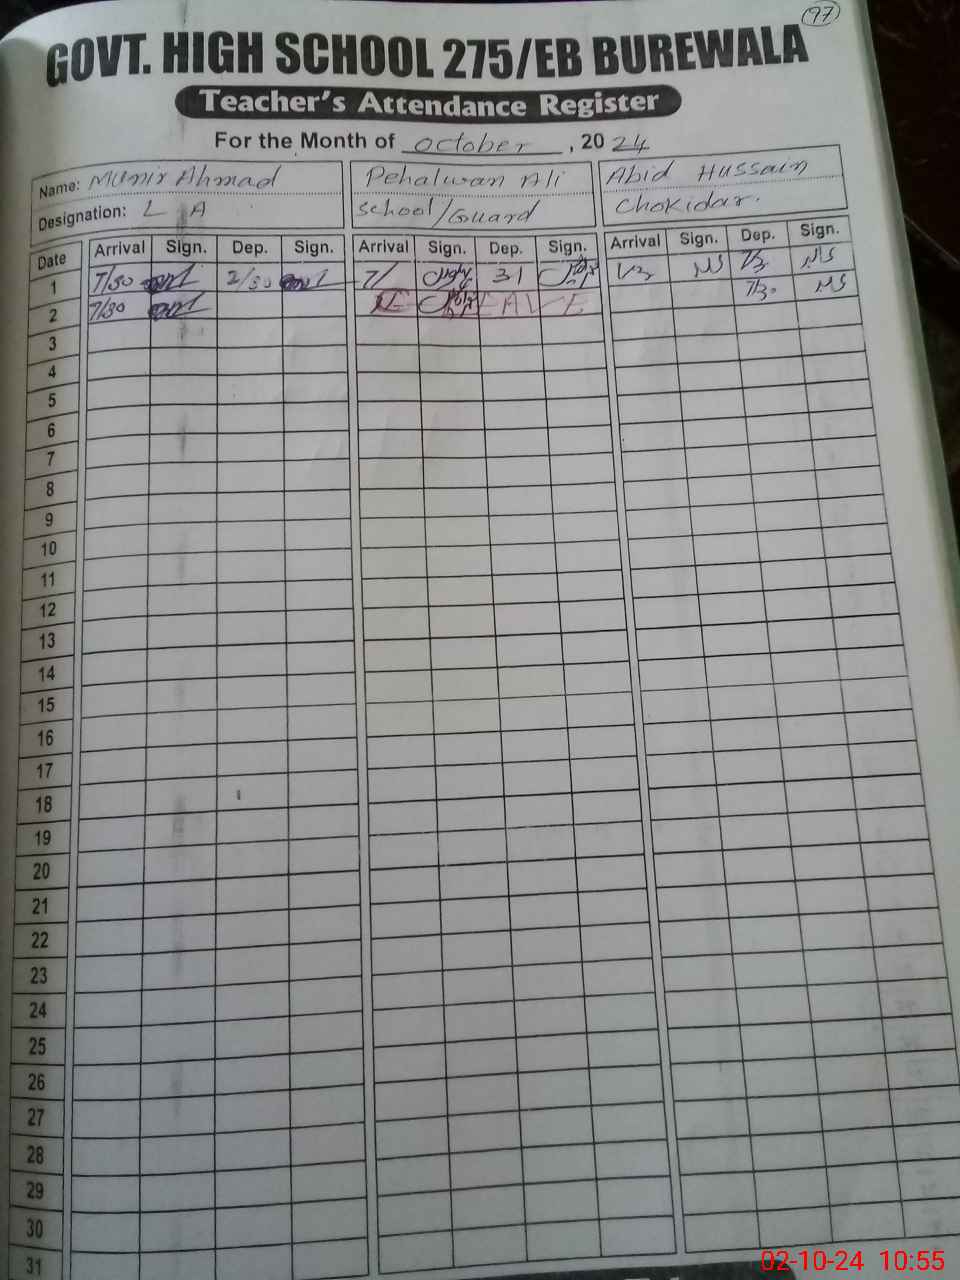 97
GOVT. HIGH SCHOOL 275/EB BUREWALA
Teacher's Attendance Register
For the Month of October, 2024
Name: Munir Ahmad Pehalwan Ali Abid Hussain
Designation: L A School/Guard Chokidar.
Date Arrival Sign. Dep. Sign. Arrival Sign. Dep. Sign. Arrival Sign. Dep. Sign.
1 7/30 2/30 7/ 31
2 7/30 LEAVE 7/30
3
4
5
6
7
8
9
10
11
12
13
14
15
16
17
18
19
20
21
22
23
24
25
26
27
28
29
30
31
02-10-24 10:55